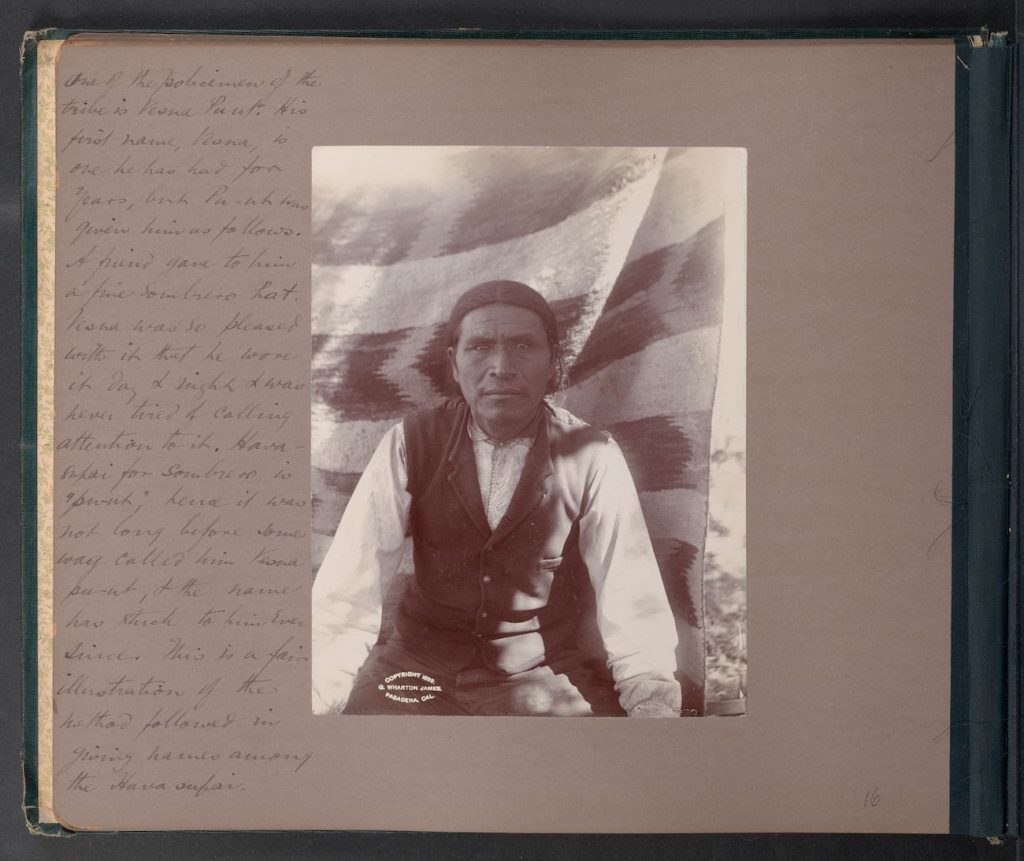 One of the policemen of the
tribe is Vesna Pu ut. His
first name, Vesna, is
one he has had for
Years, but Pu-ut was
given him as follows.
A friend gave to him
a fine Sombrero hat.
Vesna was so pleased
with it that he wore
it day & night & was
never tired of calling
attention to it. Hava-
supai for Sombrero is
"pu-ut," hence it was
not long before some
wag called him Vesna
pu-ut, & the name
has stuck to him Ever
Since. This is a fair
illustration of the
method followed in
giving names among
the Hava supai.
COPYRIGHT
G. WHARTON JAMES,
PASADENA, CAL.
16